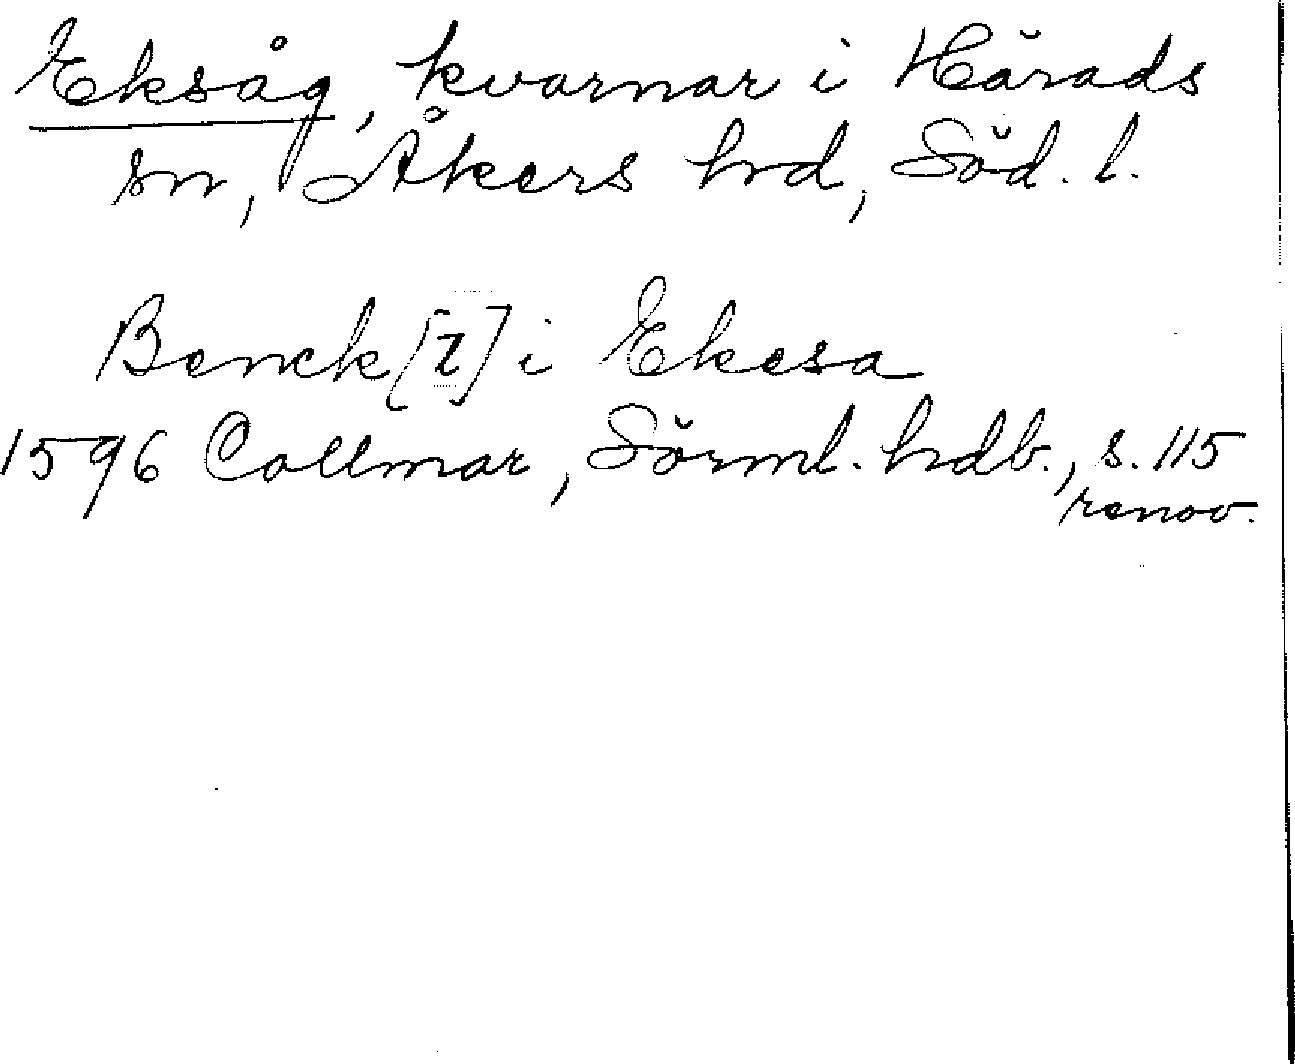 Eksåg, kvarnar i Härads
sn, Åkers hrd, Söd. l.
Benck[t] i Ekesa
1596 Collmar, Sörml. hdb., s. 115
renov.